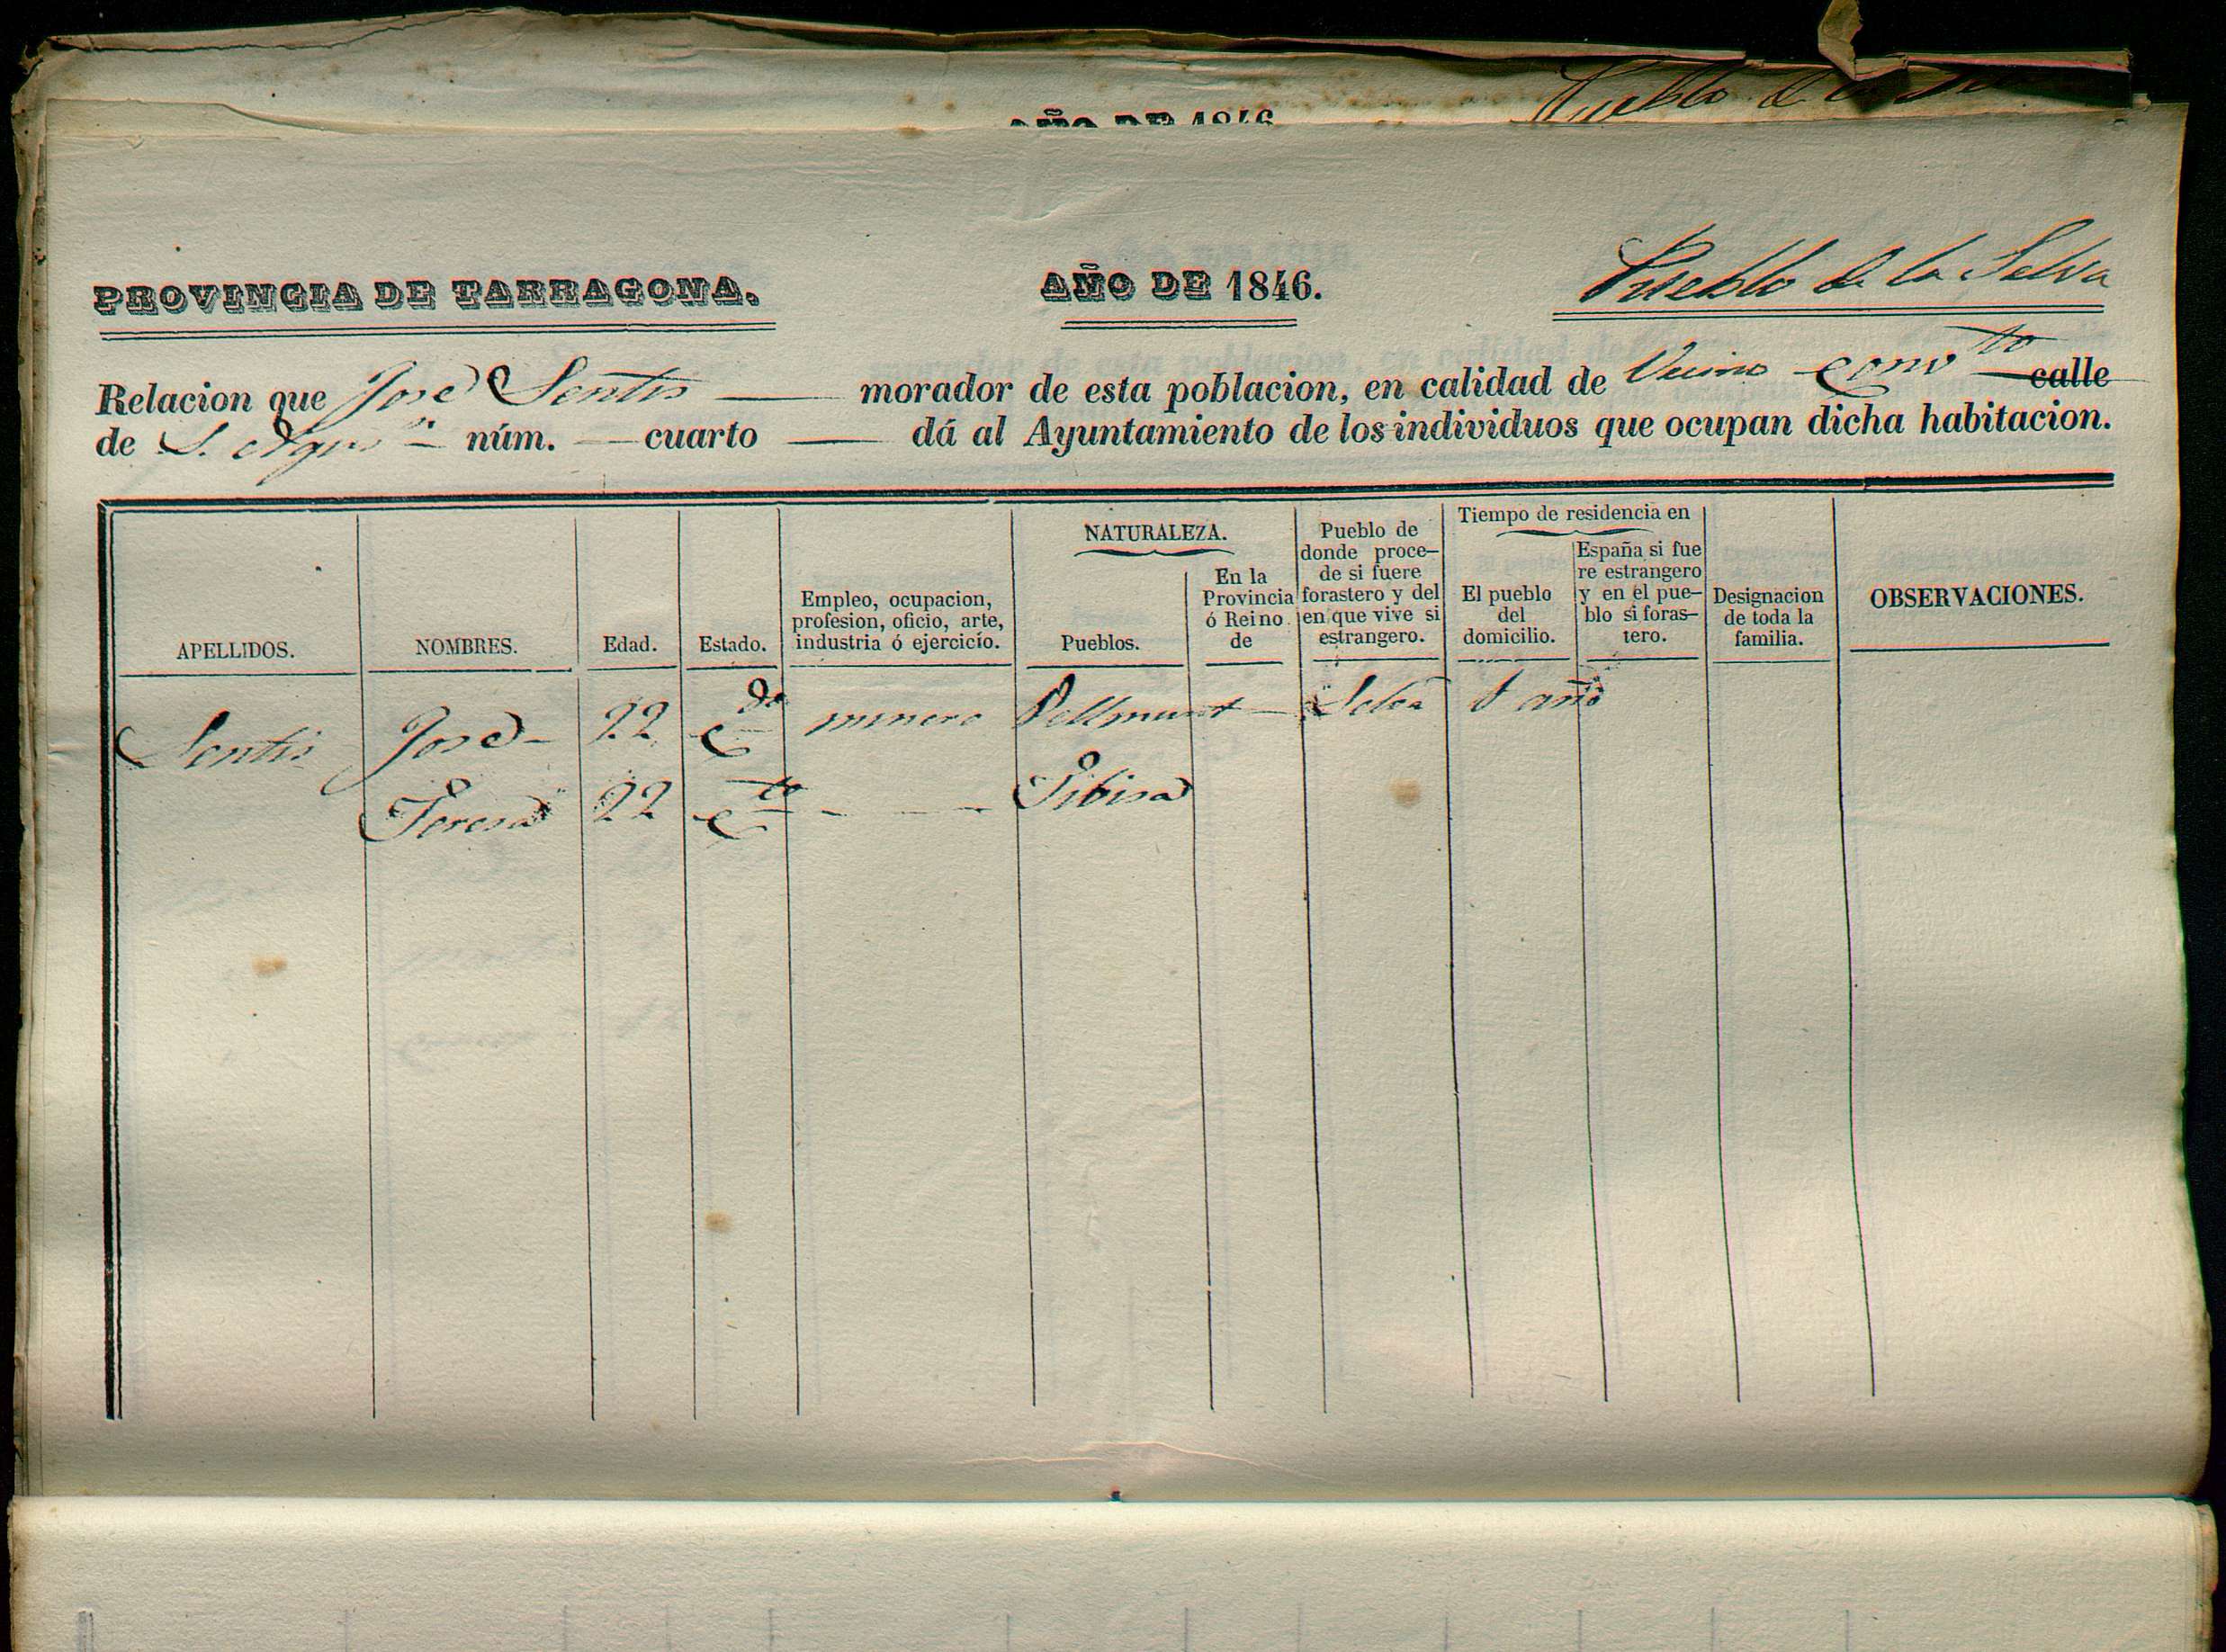 AÑO DE 1846
Pueblo de la
PROVINCIA DE TARRAGONA.
AÑO DE 1846.
Pueblo de la Selva
Relacion que José Sentis morador de esta poblacion, en calidad de Vecino calle
de S. núm. cuarto dá al Ayuntamiento de los individuos que ocupan dicha habitacion.
APELLIDOS.
NOMBRES.
Edad.
Estado.
Empleo, ocupacion,
profesion, oficio, arte,
industria ó ejercicio.
NATURALEZA.
Pueblos.
En la
Provincia
ó Reino
de
Pueblo de
donde proce-
de si fuere
forastero y del
en que vive si
estrangero.
Tiempo de residencia en
El pueblo
del
domicilio.
España si fue
re estrangero
y en el pue-
blo si foras-
tero.
Designacion
de toda la
familia.
OBSERVACIONES.
Sentis José 22 Cdo minero Bellmunt Selva año
Teresa 22 Cto